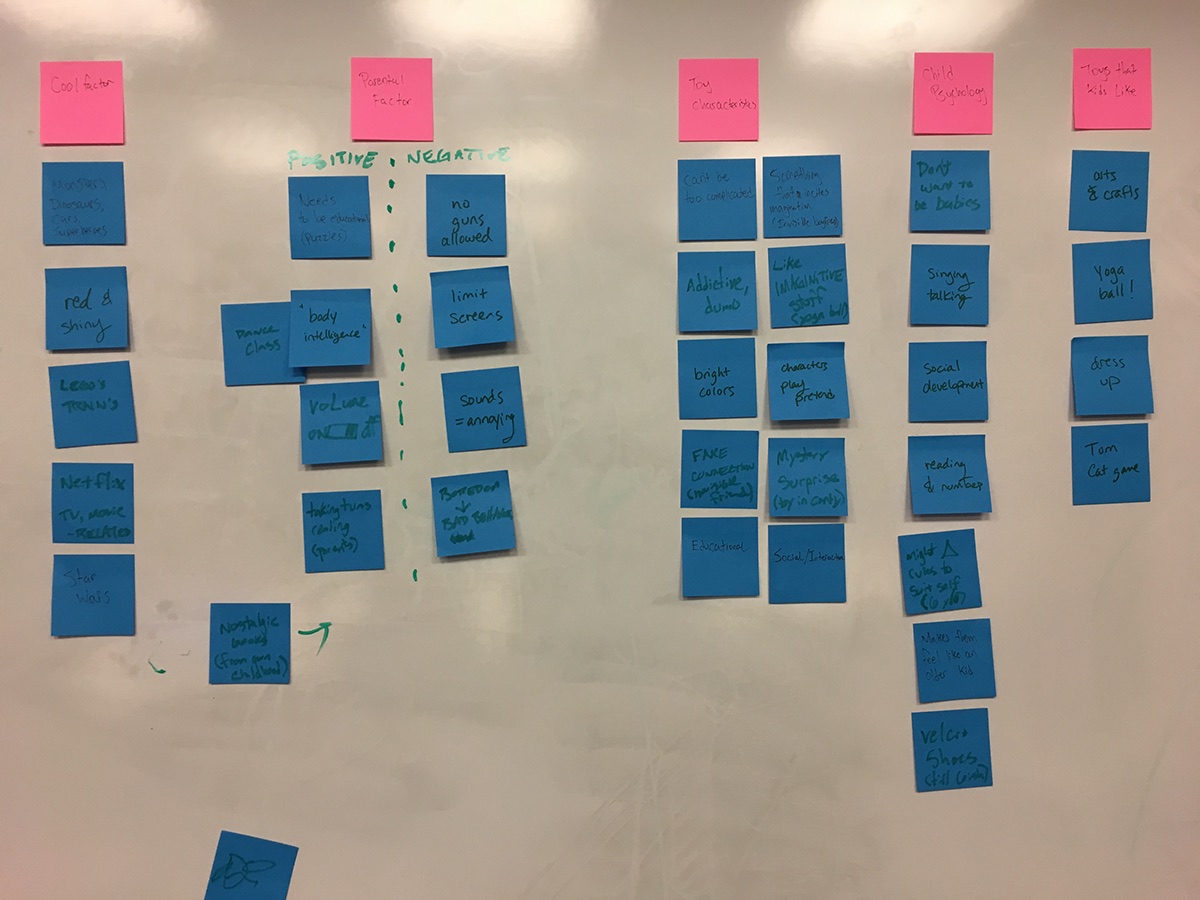 Cool factor
Monsters,
Dinosaurs,
Cars,
Superheroes
red &
shiny
LEGO'S
TRAIN'S
Netflix
TV, MOVIE
-RELATED
Star
Wars
Parental
Factor
POSITIVE
NEGATIVE
Needs
to be educational
(puzzles)
DANCE
CLASS
"body
intelligence"
VOLUME
ON off
taking turns
reading
(parents)
Nostalgic
books
(from own
childhood)
no
guns
allowed
limit
screens
sounds
=annoying
BOREDOM
↓
BAD BEHAVIOR
Toy
characteristics
Can't be
too complicated
Addictive,
dumb
bright
colors
FAKE
CONNECTION
(invisible
friends)
Educational
Something
that incites
imagination
Like
IMAGINITIVE
stuff
(yoga ball)
characters
play
pretend
Mystery
Surprise
(toy in candy)
Social/Interaction
Child
Psychology
Don't
want to
be babies
Singing
talking
Social
development
reading
& numbers
might Δ
rules to
suit self
Makes them
feel like an
older kid
velcro
shoes
(still
Toys that
kids like
arts
& crafts
Yoga
ball!
dress
up
Tom
Cat game